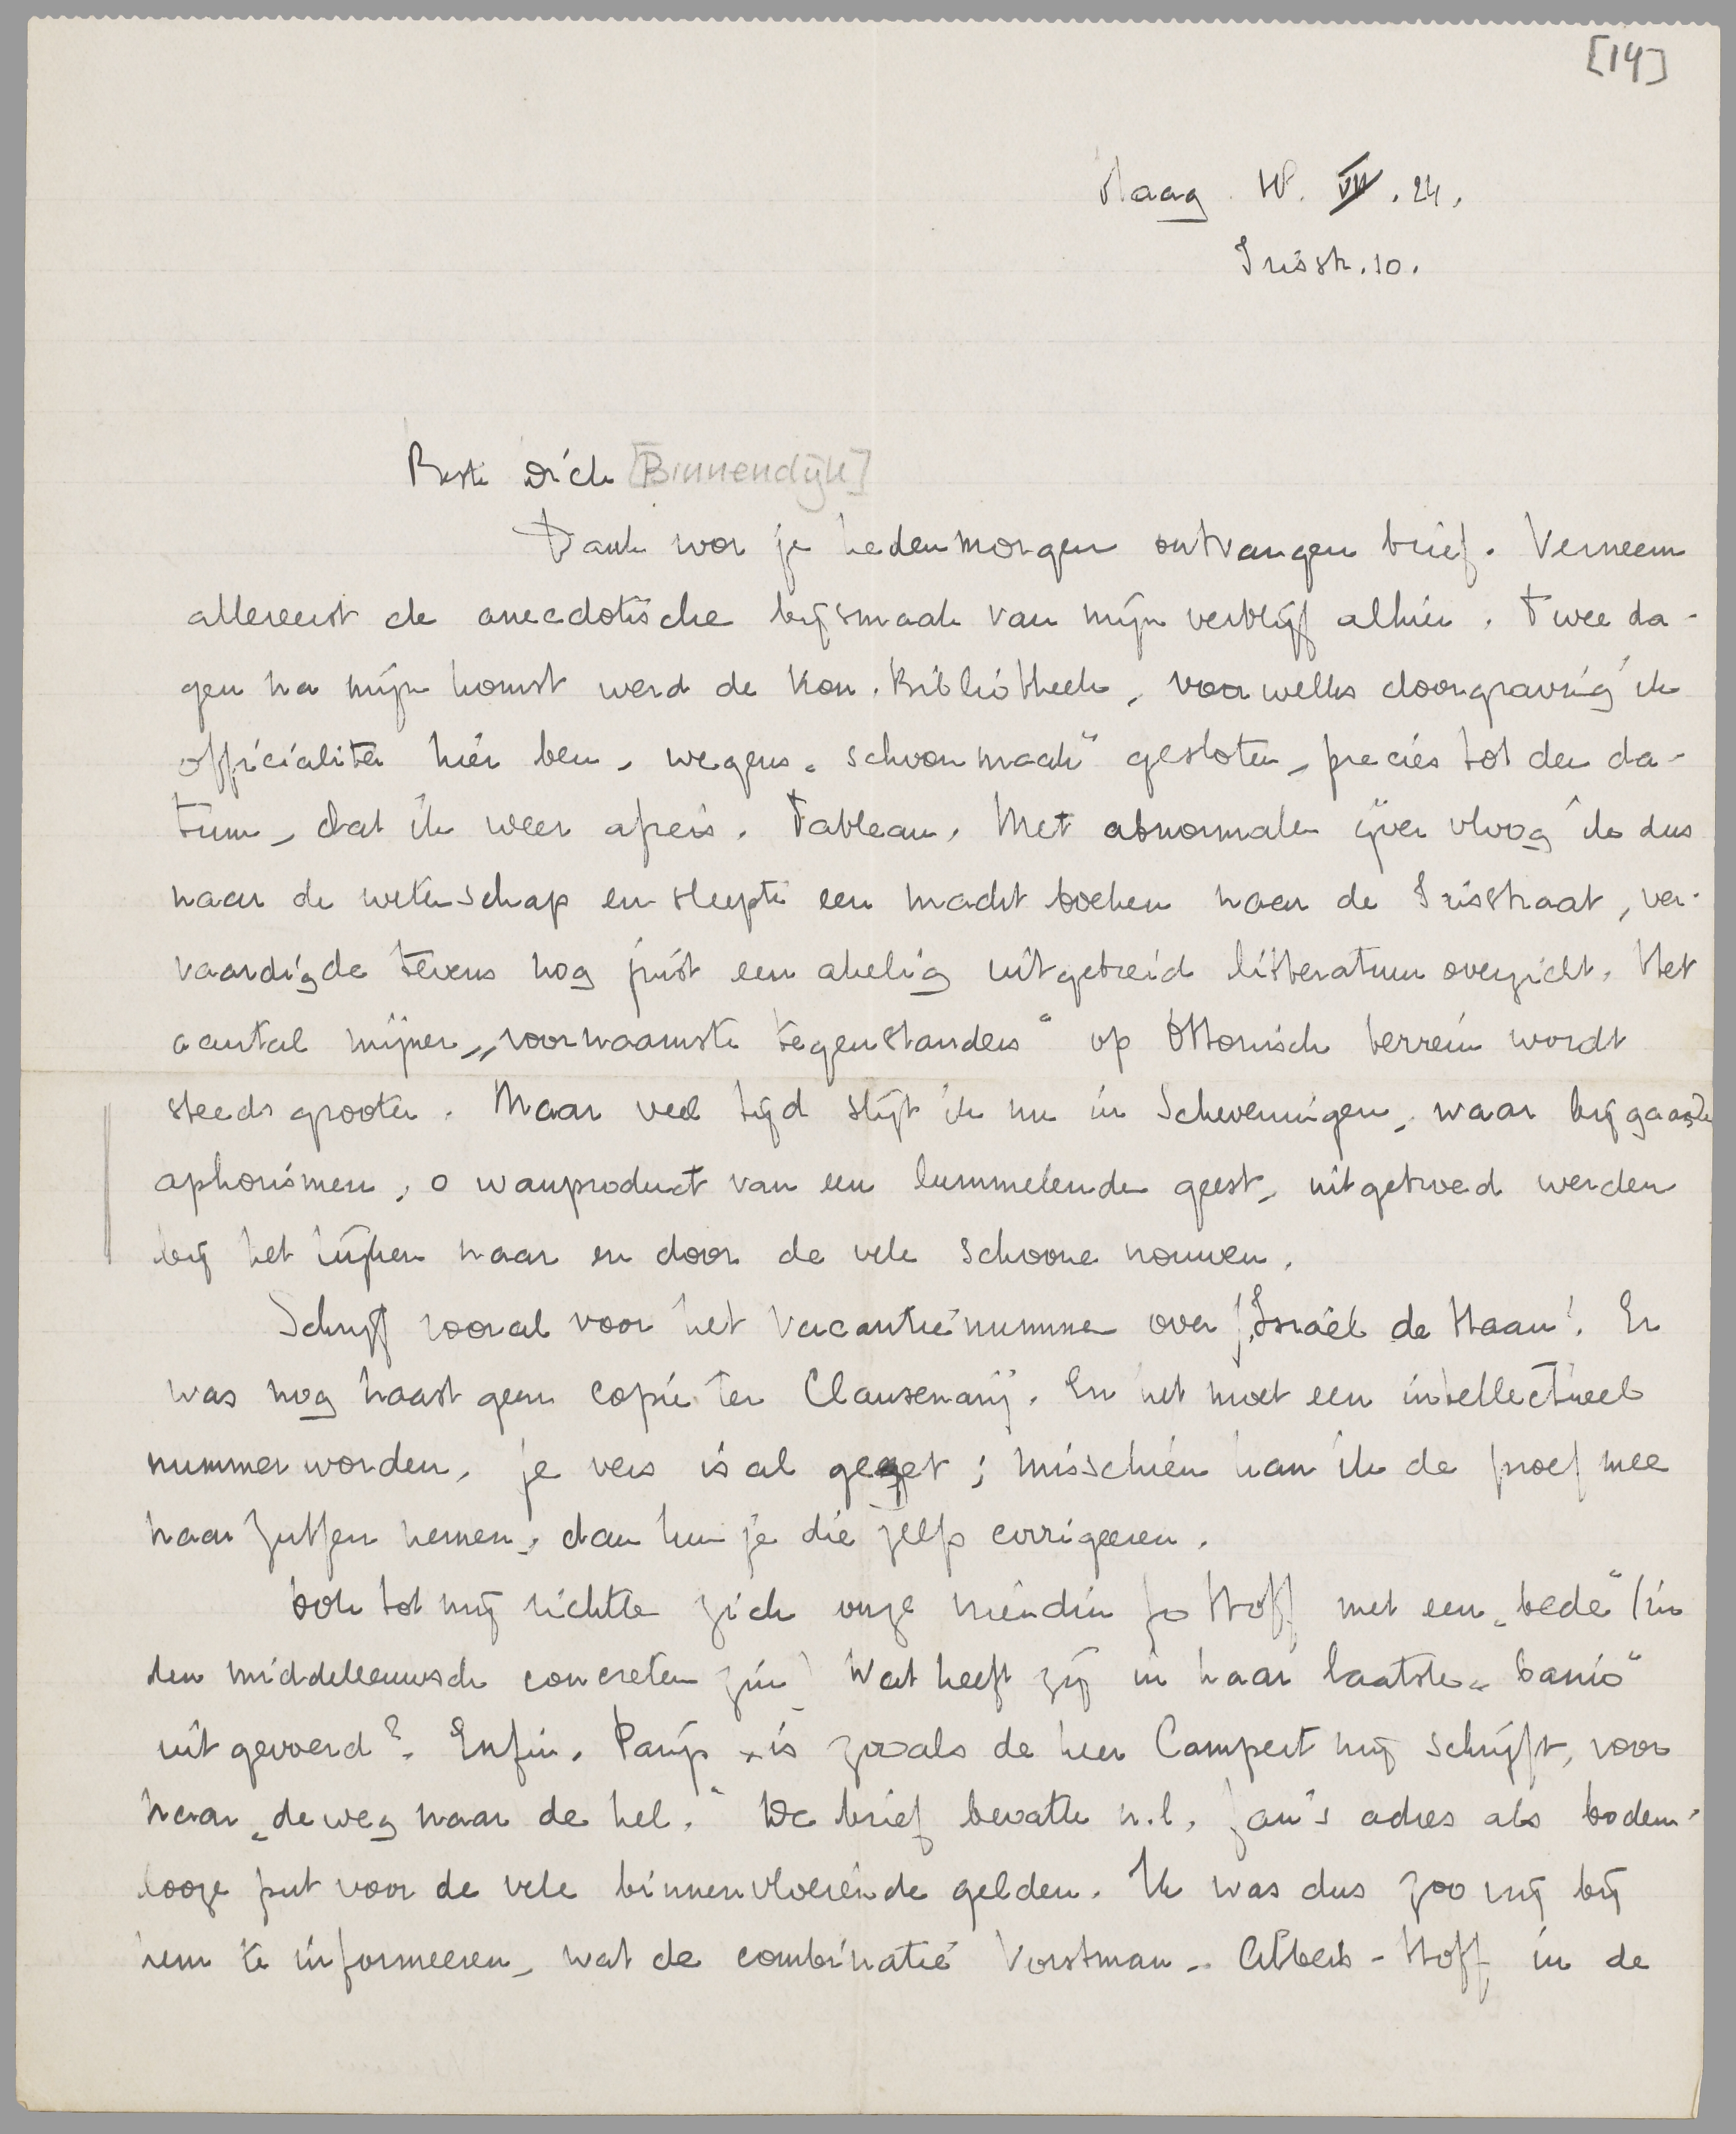 [14]
Haag. W. VII. 24.
Irisstr. 10.
Beste Dick [Binnendijk]
Dank voor je hedenmorgen ontvangen brief. Verneem
allereerst de anecdotische bijsmaak van mijn verblijf alhier. Twee da-
gen na mijn komst werd de Kon. Bibliotheek, voor welks doorgraving ik
officialiter hier ben, wegens „schoonmaak” gesloten, precies tot den da-
tum, dat ik weer afreis. Tableau. Met abnormalen ijver vloog ik dus
naar de wetenschap en sleepte een macht boeken naar de Irisstraat, ver-
vaardigde tevens nog juist een akelig uitgebreid litteratuuroverzicht. Het
aantal mijner „voornaamste tegenstanders” op Ottonisch terrein wordt
steeds grooter. Maar veel tijd slijt ik nu in Scheveningen, waar bijgaande
aphorismen, o wanproduct van een lummelenden geest, uitgebroed werden
bij het kijken naar en door de vele schoone vrouwen.
Schrijf vooral voor het Vacantienummer over „Israël de Haan”. Er
was nog haast geen copie ter Clausenarij. En het moet een intellectueel
nummer worden. Je vers is al gezet; misschien kan ik de proef mee
naar Zutfen nemen, dan kun je die zelf corrigeeren.
Ook tot mij richtte zich onze vriendin Jo Hoff met een „bede” (in
den middeleeuwsch concreten zin) Wat heeft zij in haar laatste „baan”
uitgevoerd?. Enfin. Parijs is zooals de heer Campert mij schrijft, voor
haar „de weg naar de hel.” De brief bevatte n.l. Jan's adres als bodem-
looze put voor de vele binnenvloeiende gelden. Ik was dus zoo vrij bij
hem te informeeren, wat de combinatie Vorstman - Albers - Hoff in de